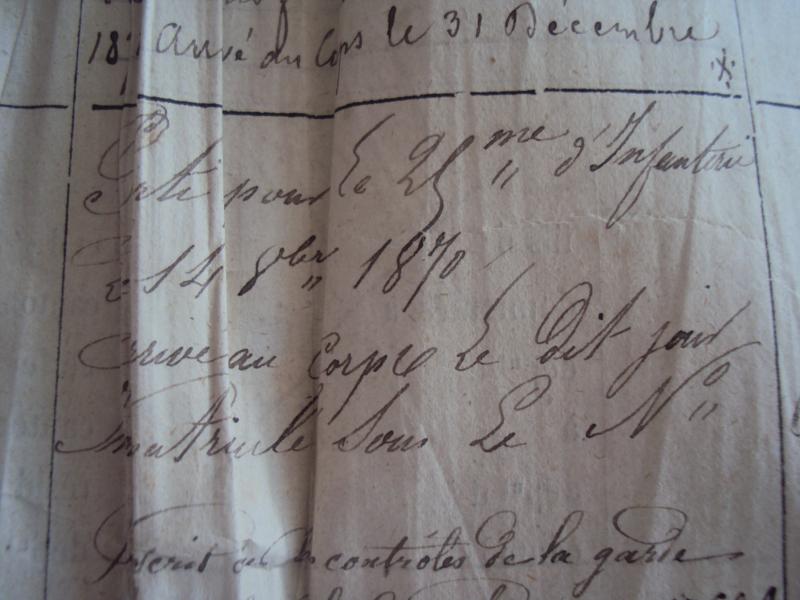 187 arrivé au Corps le 31 Décembre
Parti pour le 25 me " d'Infanterie
le 14 8bre " 1870
arrive au Corps Le dit jour
Immatriculé Sous Le No "
Inscrit sur les contrôles de la garde